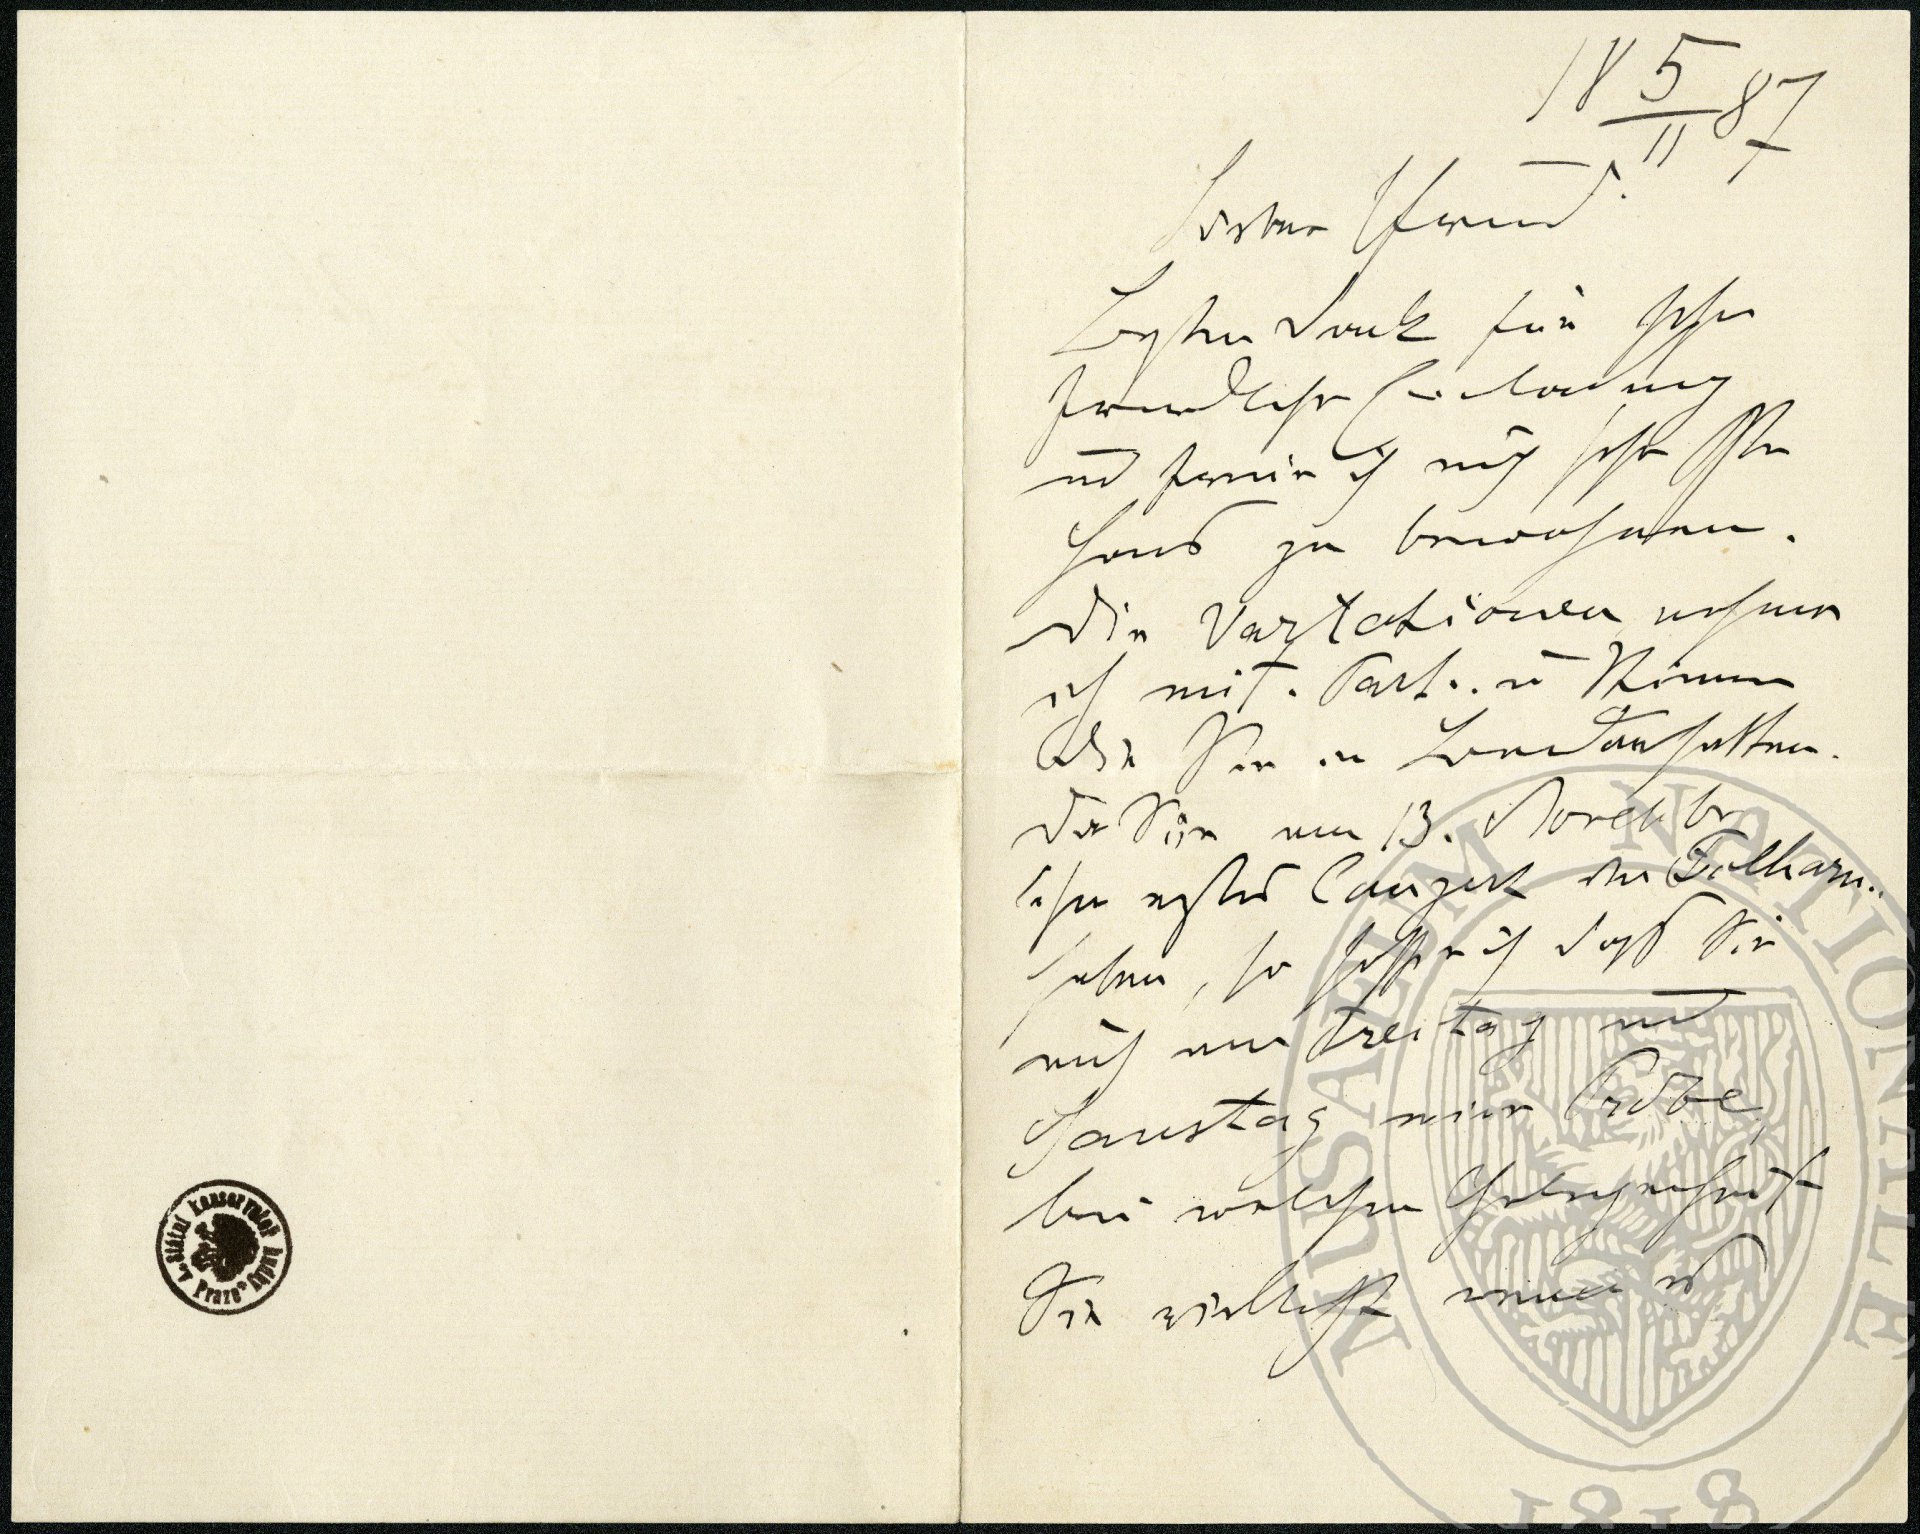 18 5/11 87
Lieber Freund!
Besten Dank für Ihre
freundliche Einladung
und freue ich mich sehr Ihr
Haus zu bewohnen.
Die Variationen nehme
ich mit. Part. u Stimmen
Da Sie am 13. November
Ihr erstes Conzert der Filharm.
haben, so hoffe ich daß Sie
mich am Freitag und
Samstag eine Probe,
bei welcher Gelegenheit
Sie vielleicht
I. státní konservatoř hudby v Praze
MUSAEUM NATIONALE
1818